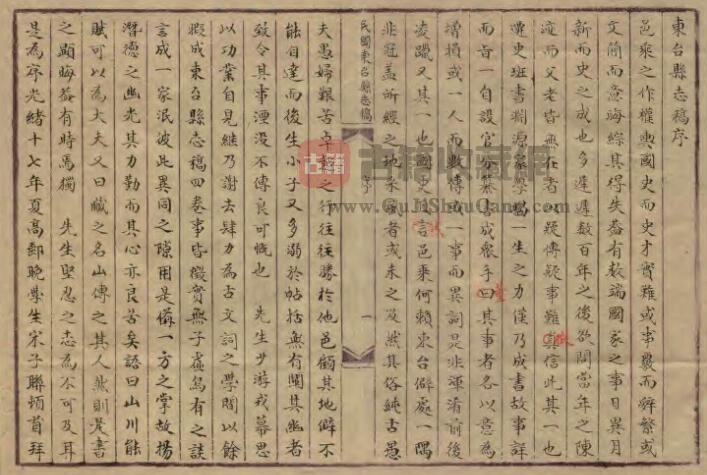 東台縣志稿序
邑乘之作權輿國史而史才實難或事嚴而辭繁或
文簡而意晦綜其得失蓋有數端國家之事日異月
新而史之成也多遲遲數百年之後欲問當年之陳
迹而父老皆無在者以疑傳疑事難真信此其一也
遷史班書淵源家學竭一生之力僅乃成書故事詳
而旨一自設官分纂書成眾手曰其事者各以意為
增損或一人而數傳或一事而異詞是非渾淆前後
凌躐又其一也國史言邑乘何賴東台僻處一隅
非冠蓋所經之地采者或未之及然其俗純古愚
民國東台縣志稿
序
一
夫愚婦艱苦卓之行往往勝於他邑顧其地僻不
能自達而後生小子又多溺於帖括無有闡其幽者
致令其事湮没不傳良可慨也 先生少游戎幕思
以功業自見繼乃謝去肆力為古文詞之學間以餘
暇成東台縣志稿四卷事皆徵實無子虛烏有之談
言成一家泯彼此異同之隙用是備一方之掌故揚
潛德之幽光其力勤而其心亦良苦矣語曰山川能
賦可以為大夫又曰藏之名山傳之其人然則是書
之顯晦蓋有時焉獨 先生堅忍之志為不可及耳
是為序光緒十七年夏高郵晚學生宋子聯頓首拜
古籍
古籍收藏網
www.GuJiShouCang.com